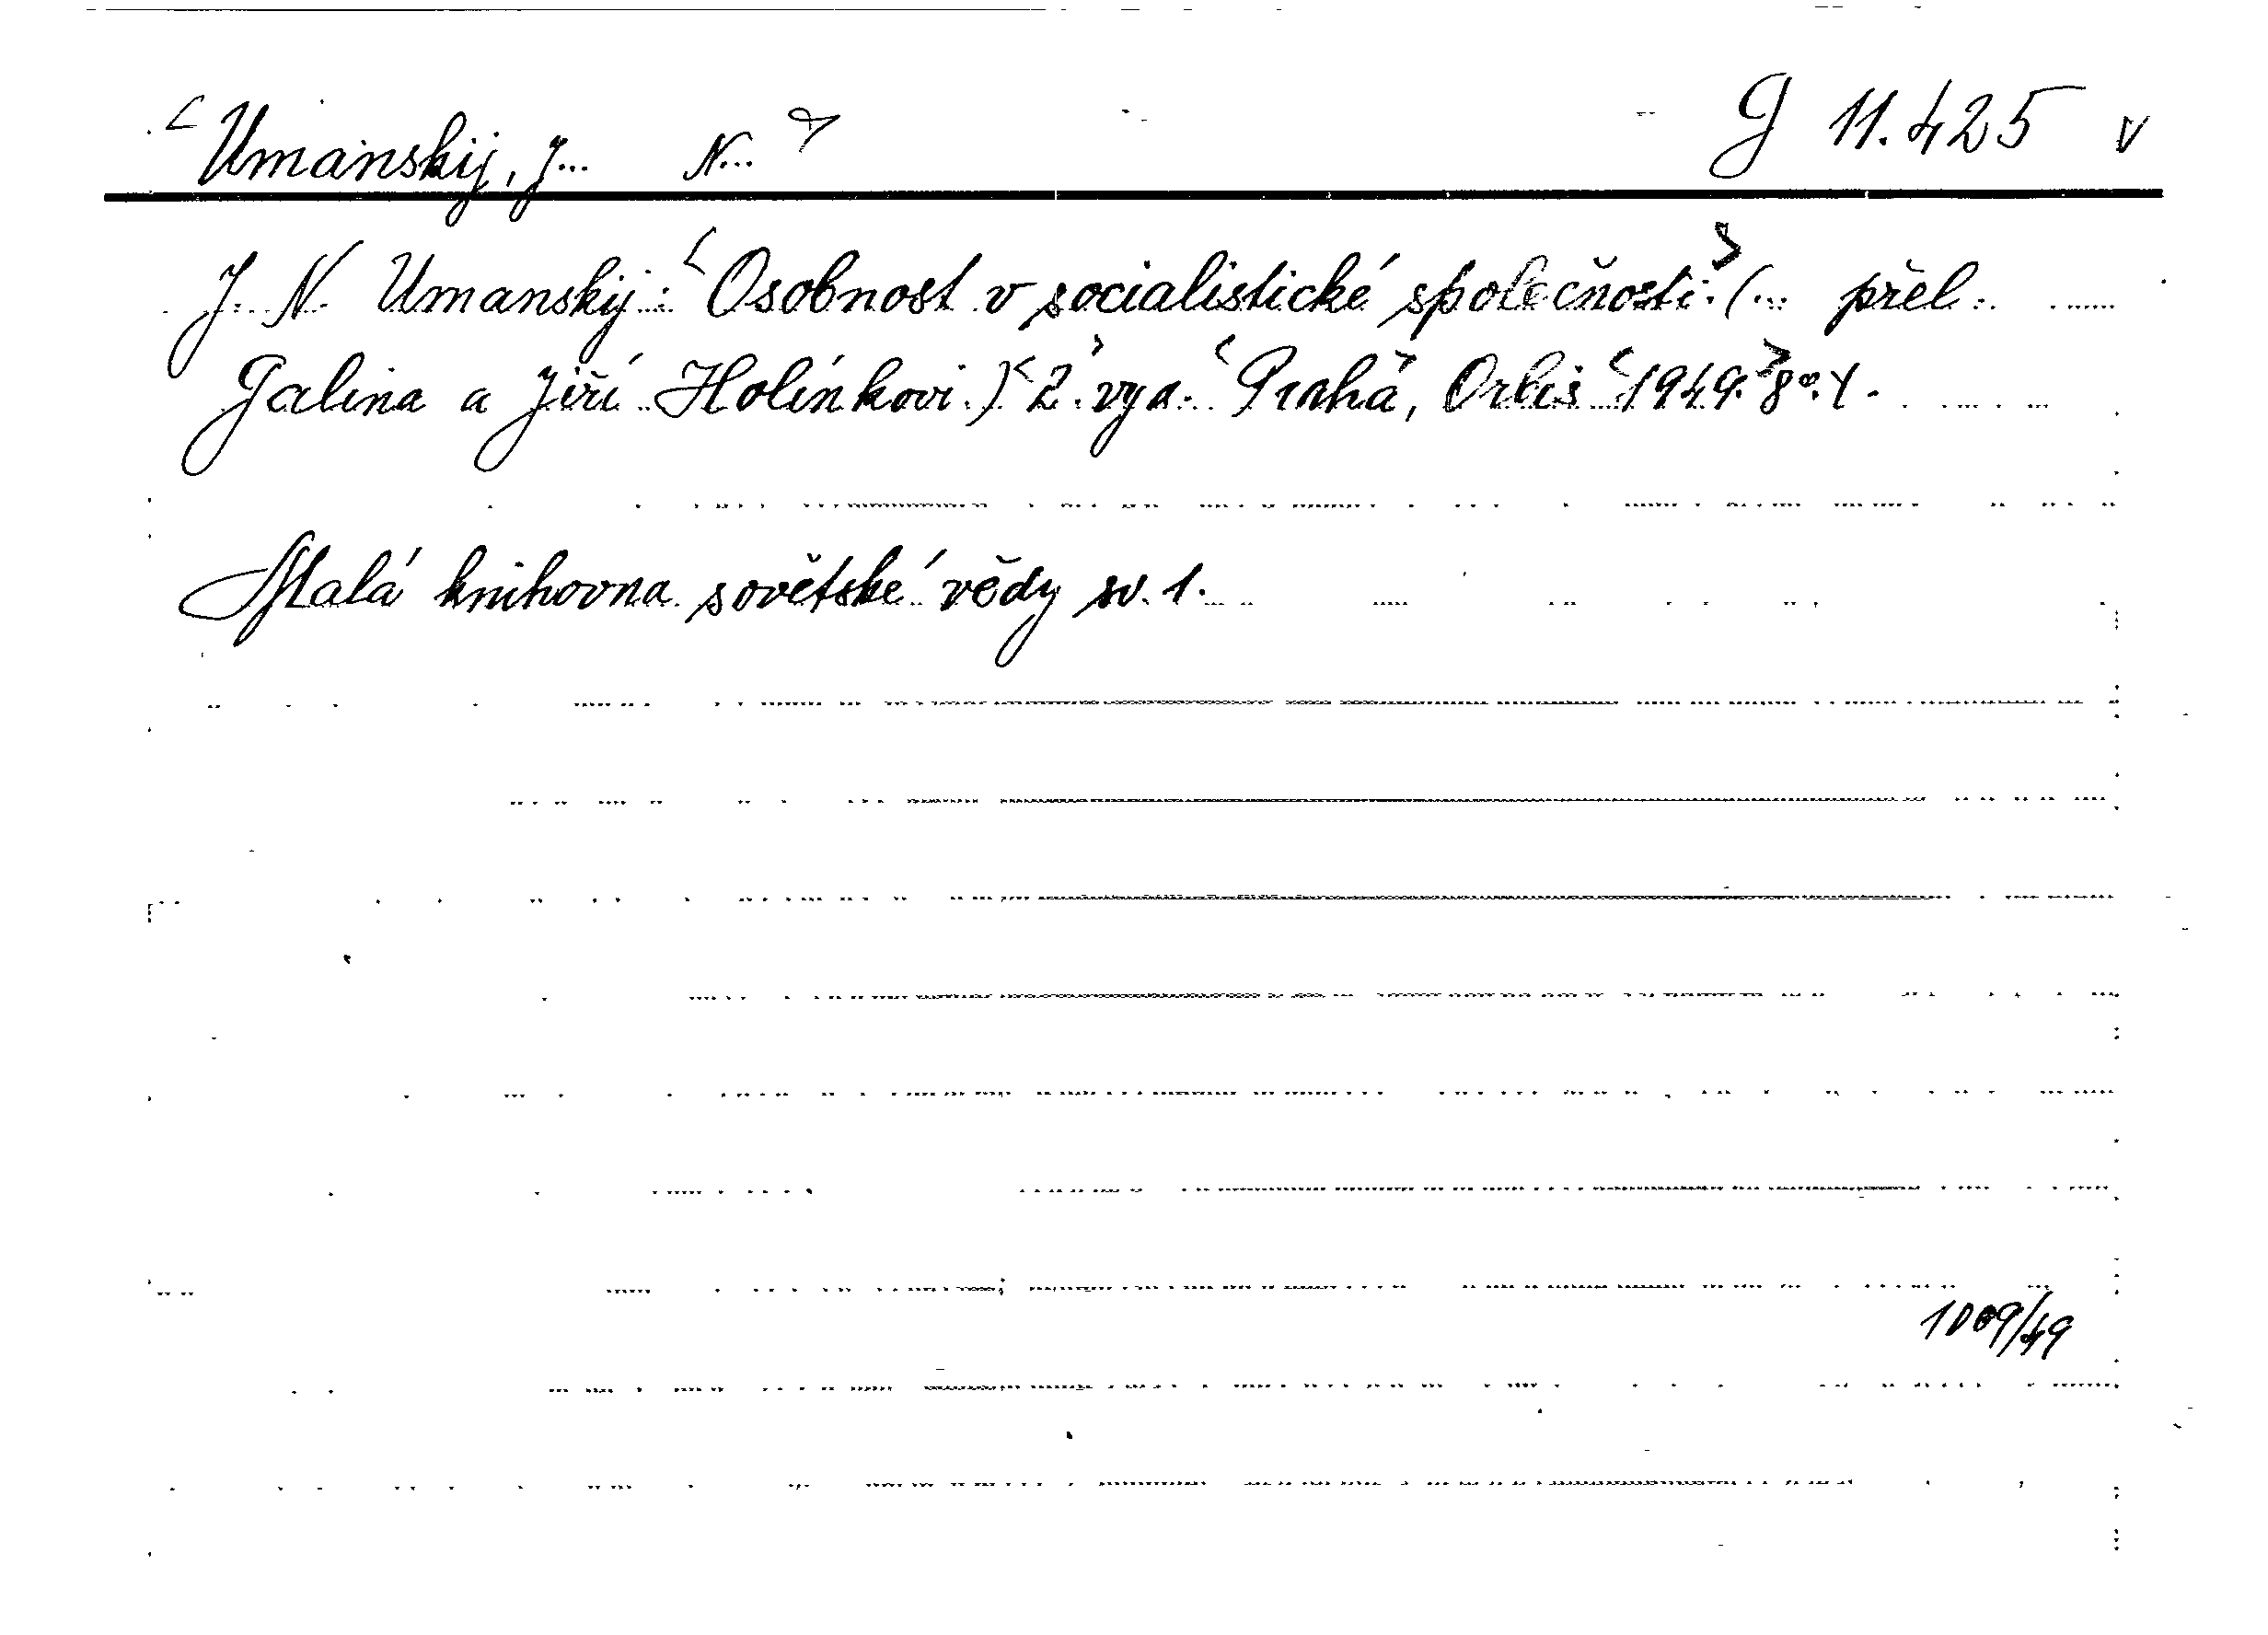 Umanskij, J... N... G 11.425 v
J. N. Umanskij: Osobnost v socialistické společnosti. (... přel.
Galina a Jiří Holínkovi.) 2. vyd. Praha, Orbis 1949. 8°.
Malá knihovna sovětské vědy sv. 1.
1009/49